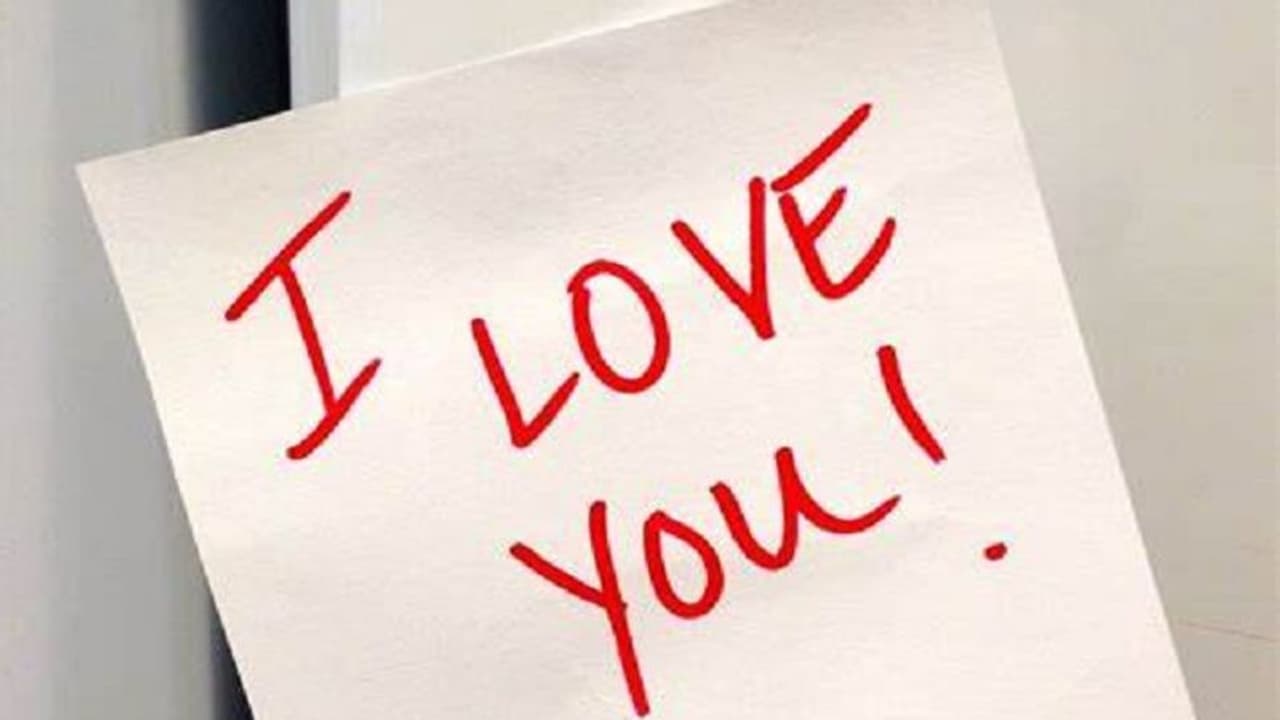 I LOVE
YOU!